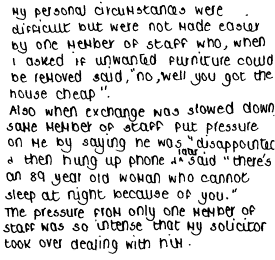 My personal circumstances were
difficult but were not made easier
by one member of staff who, when
I asked if unwanted furniture could
be removed said, "no, well you got the
house cheap".
Also when exchange was slowed down
same member of staff put pressure
on me by saying he was "disappointed
& then hung up phone & later said "there's
an 89 year old woman who cannot
sleep at night because of you."
The pressure from only one member of
staff was so intense that my solicitor
took over dealing with him.